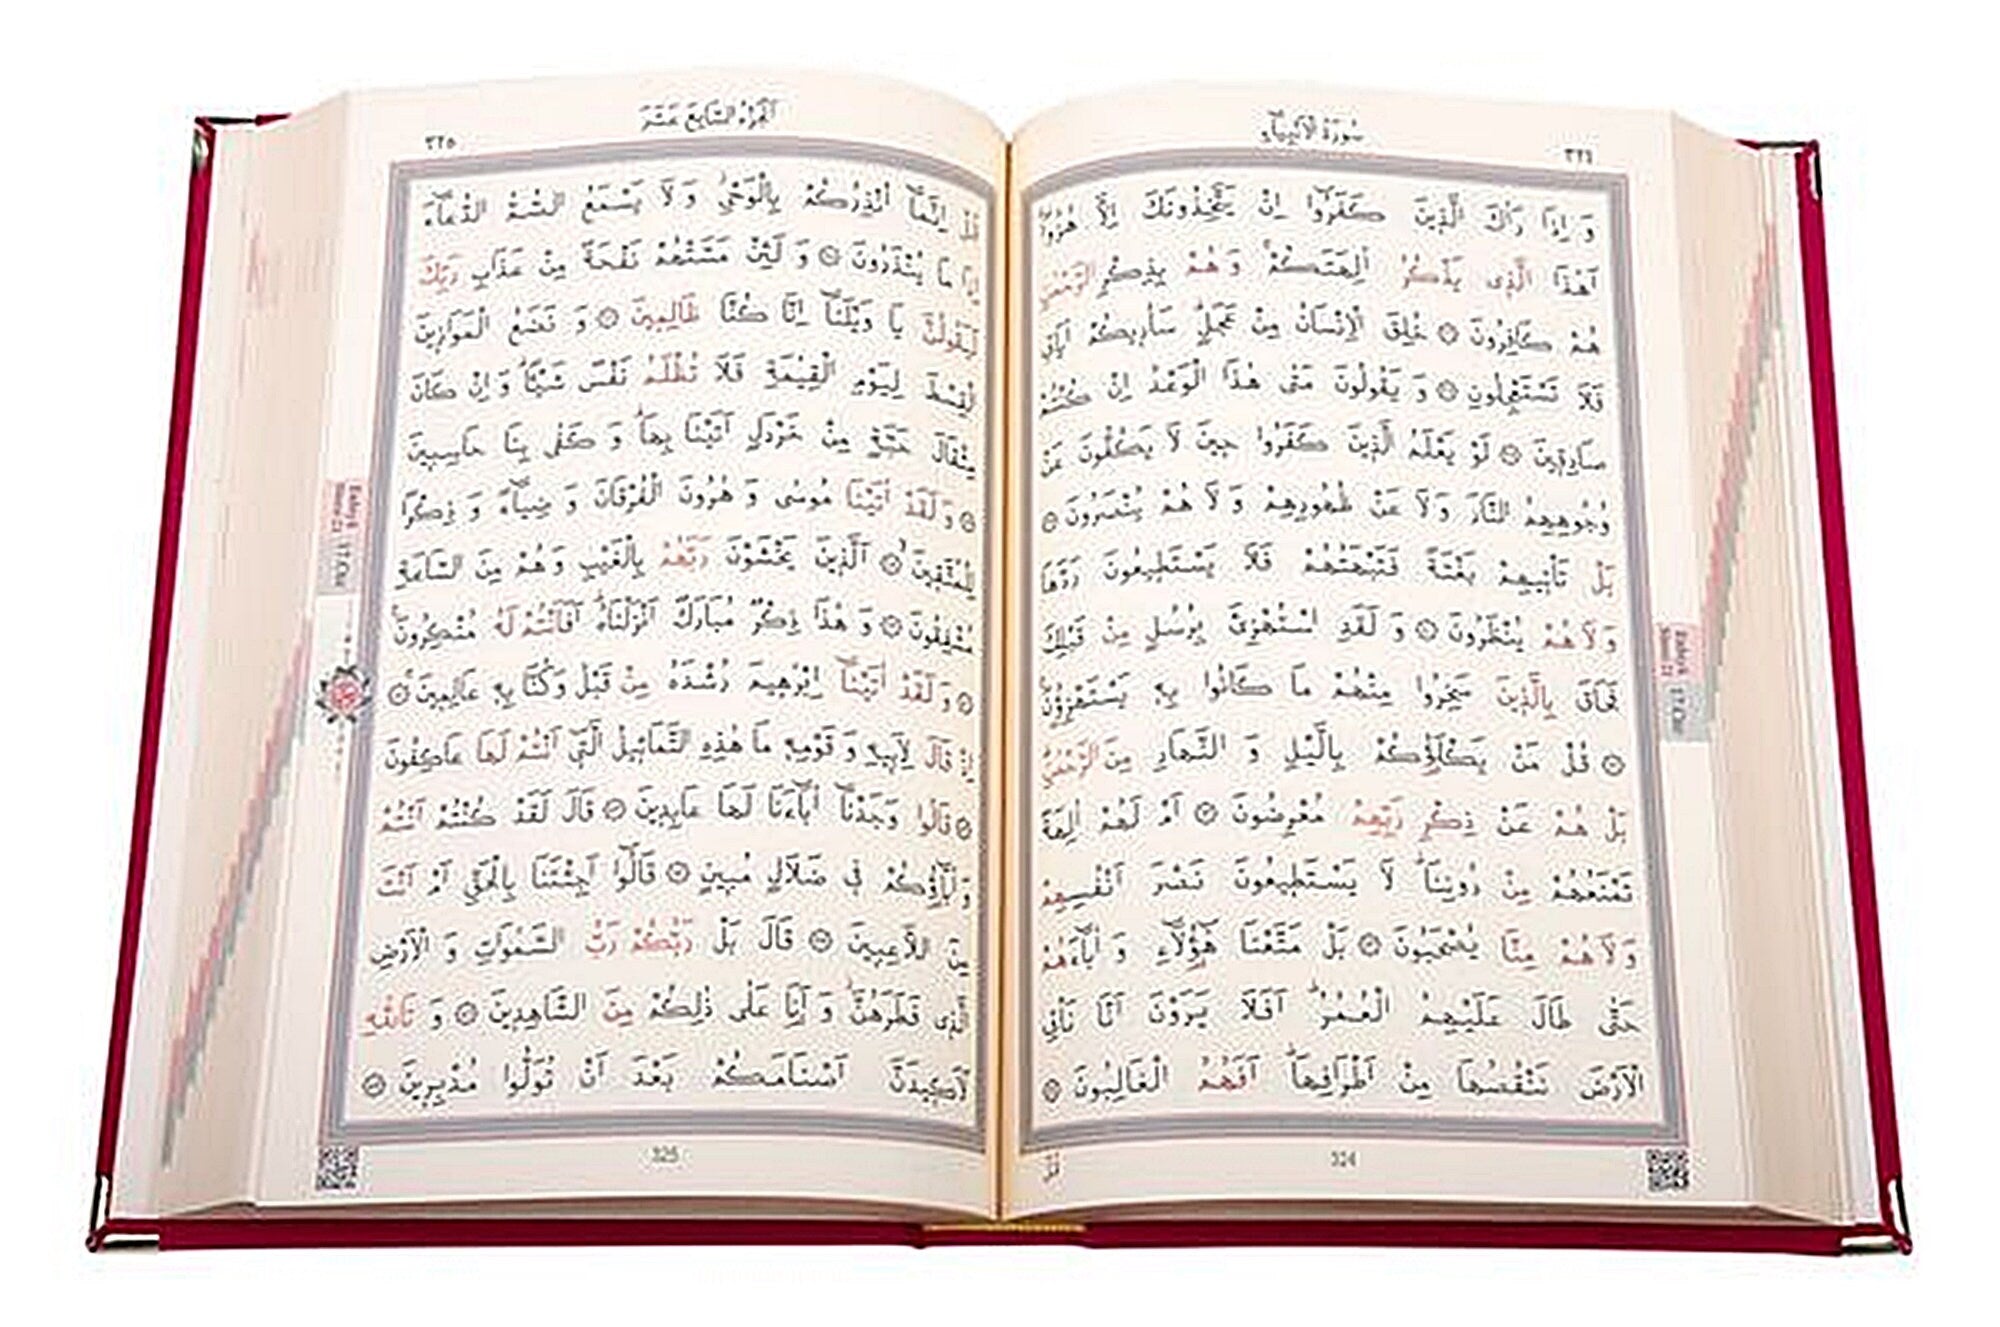 سُورَةُ الْاَنْبِيَاءِ
وَ اِذَا رَاٰكَ الَّذ۪ينَ كَفَرُٓوا اِنْ يَتَّخِذُونَكَ اِلَّا هُزُوًاۜ
اَهٰذَا الَّذ۪ي يَذْكُرُ اٰلِهَتَكُمْۚ وَ هُمْ بِذِكْرِ الرَّحْمٰنِ
هُمْ كَافِرُونَ ۞ خُلِقَ الْاِنْسَانُ مِنْ عَجَلٍۜ سَاُر۪يكُمْ اٰيَات۪ي
فَلَا تَسْتَعْجِلُونِ ۞ وَ يَقُولُونَ مَتٰى هٰذَا الْوَعْدُ اِنْ كُنْتُمْ
صَادِق۪ينَ ۞ لَوْ يَعْلَمُ الَّذ۪ينَ كَفَرُوا ح۪ينَ لَا يَكُفُّونَ عَنْ
وُجُوهِهِمُ النَّارَ وَلَا عَنْ ظُهُورِهِمْ وَ لَا هُمْ يُنْصَرُونَ ۞
بَلْ تَأْت۪يهِمْ بَغْتَةً فَتَبْهَتُهُمْ فَلَا يَسْتَط۪يعُونَ رَدَّهَا
وَ لَا هُمْ يُنْظَرُونَ ۞ وَ لَقَدِ اسْتُهْزِئَ بِرُسُلٍ مِنْ قَبْلِكَ
فَحَاقَ بِالَّذ۪ينَ سَخِرُوا مِنْهُمْ مَا كَانُوا بِه۪ يَسْتَهْزِؤُ۫نَ
۞ قُلْ مَنْ يَكْلَؤُ۬كُمْ بِالَّيْلِ وَ النَّهَارِ مِنَ الرَّحْمٰنِۜ
بَلْ هُمْ عَنْ ذِكْرِ رَبِّهِمْ مُعْرِضُونَ ۞ اَمْ لَهُمْ اٰلِهَةٌ
تَمْنَعُهُمْ مِنْ دُونِنَاۜ لَا يَسْتَط۪يعُونَ نَصْرَ اَنْفُسِهِمْ
وَ لَا هُمْ مِنَّا يُصْحَبُونَ ۞ بَلْ مَتَّعْنَا هٰٓؤُ۬لَٓاءِ وَ اٰبَٓاءَهُمْ
حَتّٰى طَالَ عَلَيْهِمُ الْعُمُرُۜ اَفَلَا يَرَوْنَ اَنَّا نَأْتِي
الْاَرْضَ نَنْقُصُهَا مِنْ اَطْرَافِهَاۜ اَفَهُمُ الْغَالِبُونَ ۞
قُلْ
324
اَلْجُزْءُ السَّابِعَ عَشَرَ
٣٢٥
قُلْ اِنَّمَٓا اُنْذِرُكُمْ بِالْوَحْيِۘ وَ لَا يَسْمَعُ الصُّمُّ الدُّعَٓاءَ
اِذَا مَا يُنْذَرُونَ ۞ وَ لَئِنْ مَسَّتْهُمْ نَفْحَةٌ مِنْ عَذَابِ رَبِّكَ
لَيَقُولُنَّ يَا وَيْلَنَٓا اِنَّا كُنَّا ظَالِم۪ينَ ۞ وَ نَضَعُ الْمَوَاز۪ينَ
الْقِسْطَ لِيَوْمِ الْقِيٰمَةِ فَلَا تُظْلَمُ نَفْسٌ شَيْـًٔاۜ وَ اِنْ كَانَ
مِثْقَالَ حَبَّةٍ مِنْ خَرْدَلٍ اَتَيْنَا بِهَاۜ وَ كَفٰى بِنَا حَاسِب۪ينَ
۞ وَ لَقَدْ اٰتَيْنَا مُوسٰى وَ هٰرُونَ الْفُرْقَانَ وَ ضِيَٓاءً وَ ذِكْرًا
لِلْمُتَّق۪ينَۙ ۞ اَلَّذ۪ينَ يَخْشَوْنَ رَبَّهُمْ بِالْغَيْبِ وَ هُمْ مِنَ السَّاعَةِ
مُشْفِقُونَ ۞ وَ هٰذَا ذِكْرٌ مُبَارَكٌ اَنْزَلْنَاهُۜ اَفَاَنْتُمْ لَهُ مُنْكِرُونَ۟
۞ وَ لَقَدْ اٰتَيْنَٓا اِبْرٰه۪يمَ رُشْدَهُ مِنْ قَبْلُ وَ كُنَّا بِه۪ عَالِم۪ينَۚ ۞
اِذْ قَالَ لِاَب۪يهِ وَ قَوْمِه۪ مَا هٰذِهِ التَّمَاث۪يلُ الَّت۪ٓي اَنْتُمْ لَهَا عَاكِفُونَ
۞ قَالُوا وَجَدْنَٓا اٰبَٓاءَنَا لَهَا عَابِد۪ينَ ۞ قَالَ لَقَدْ كُنْتُمْ اَنْتُمْ
وَ اٰبَٓاؤُ۬كُمْ ف۪ي ضَلَالٍ مُب۪ينٍ ۞ قَالُٓوا اَجِئْتَنَا بِالْحَقِّ اَمْ اَنْتَ
مِنَ اللَّاعِب۪ينَ ۞ قَالَ بَلْ رَبُّكُمْ رَبُّ السَّمٰوَاتِ وَ الْاَرْضِ
الَّذ۪ي فَطَرَهُنَّۘ وَ اَنَا۬ عَلٰى ذٰلِكُمْ مِنَ الشَّاهِد۪ينَ ۞ وَ تَاللّٰهِ
لَاَك۪يدَنَّ اَصْنَامَكُمْ بَعْدَ اَنْ تُوَلُّوا مُدْبِر۪ينَ ۞
325